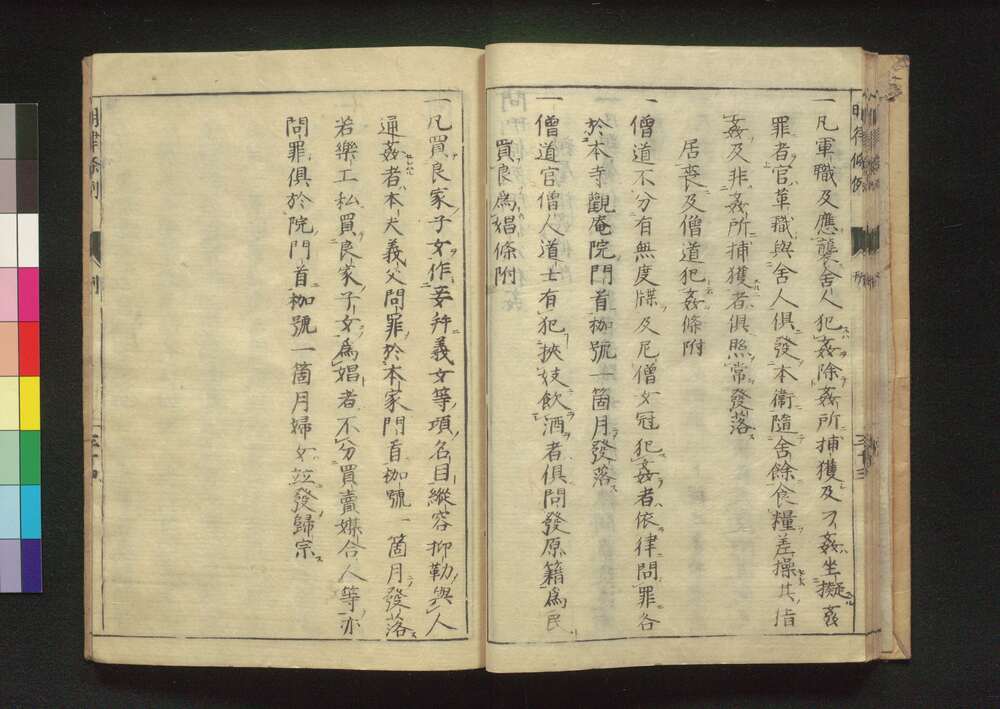 一凡軍職及應襲舍人犯姦除姦所捕獲及刁姦坐擬姦
罪者官革職與舍人俱發本衞隨舍餘食糧差操其指
姦及非姦所捕獲者俱照常發落
居喪及僧道犯姦條附
一僧道不分有無度牒及尼僧女冠犯姦者依律問罪各
於本寺觀庵院門首枷號一箇月發落
一僧道官僧人道士有犯挾妓飲酒者俱問發原籍為民
買良為娼條附
一凡買良家子女作妾幷義女等項名目縱容抑勒與人
通姦者本夫義父問罪於本家門首枷號一箇月發落
若樂工私買良家子女為娼者不分買賣媒合人等亦
問罪俱於院門首枷號一箇月婦女竝發歸宗
明律條例